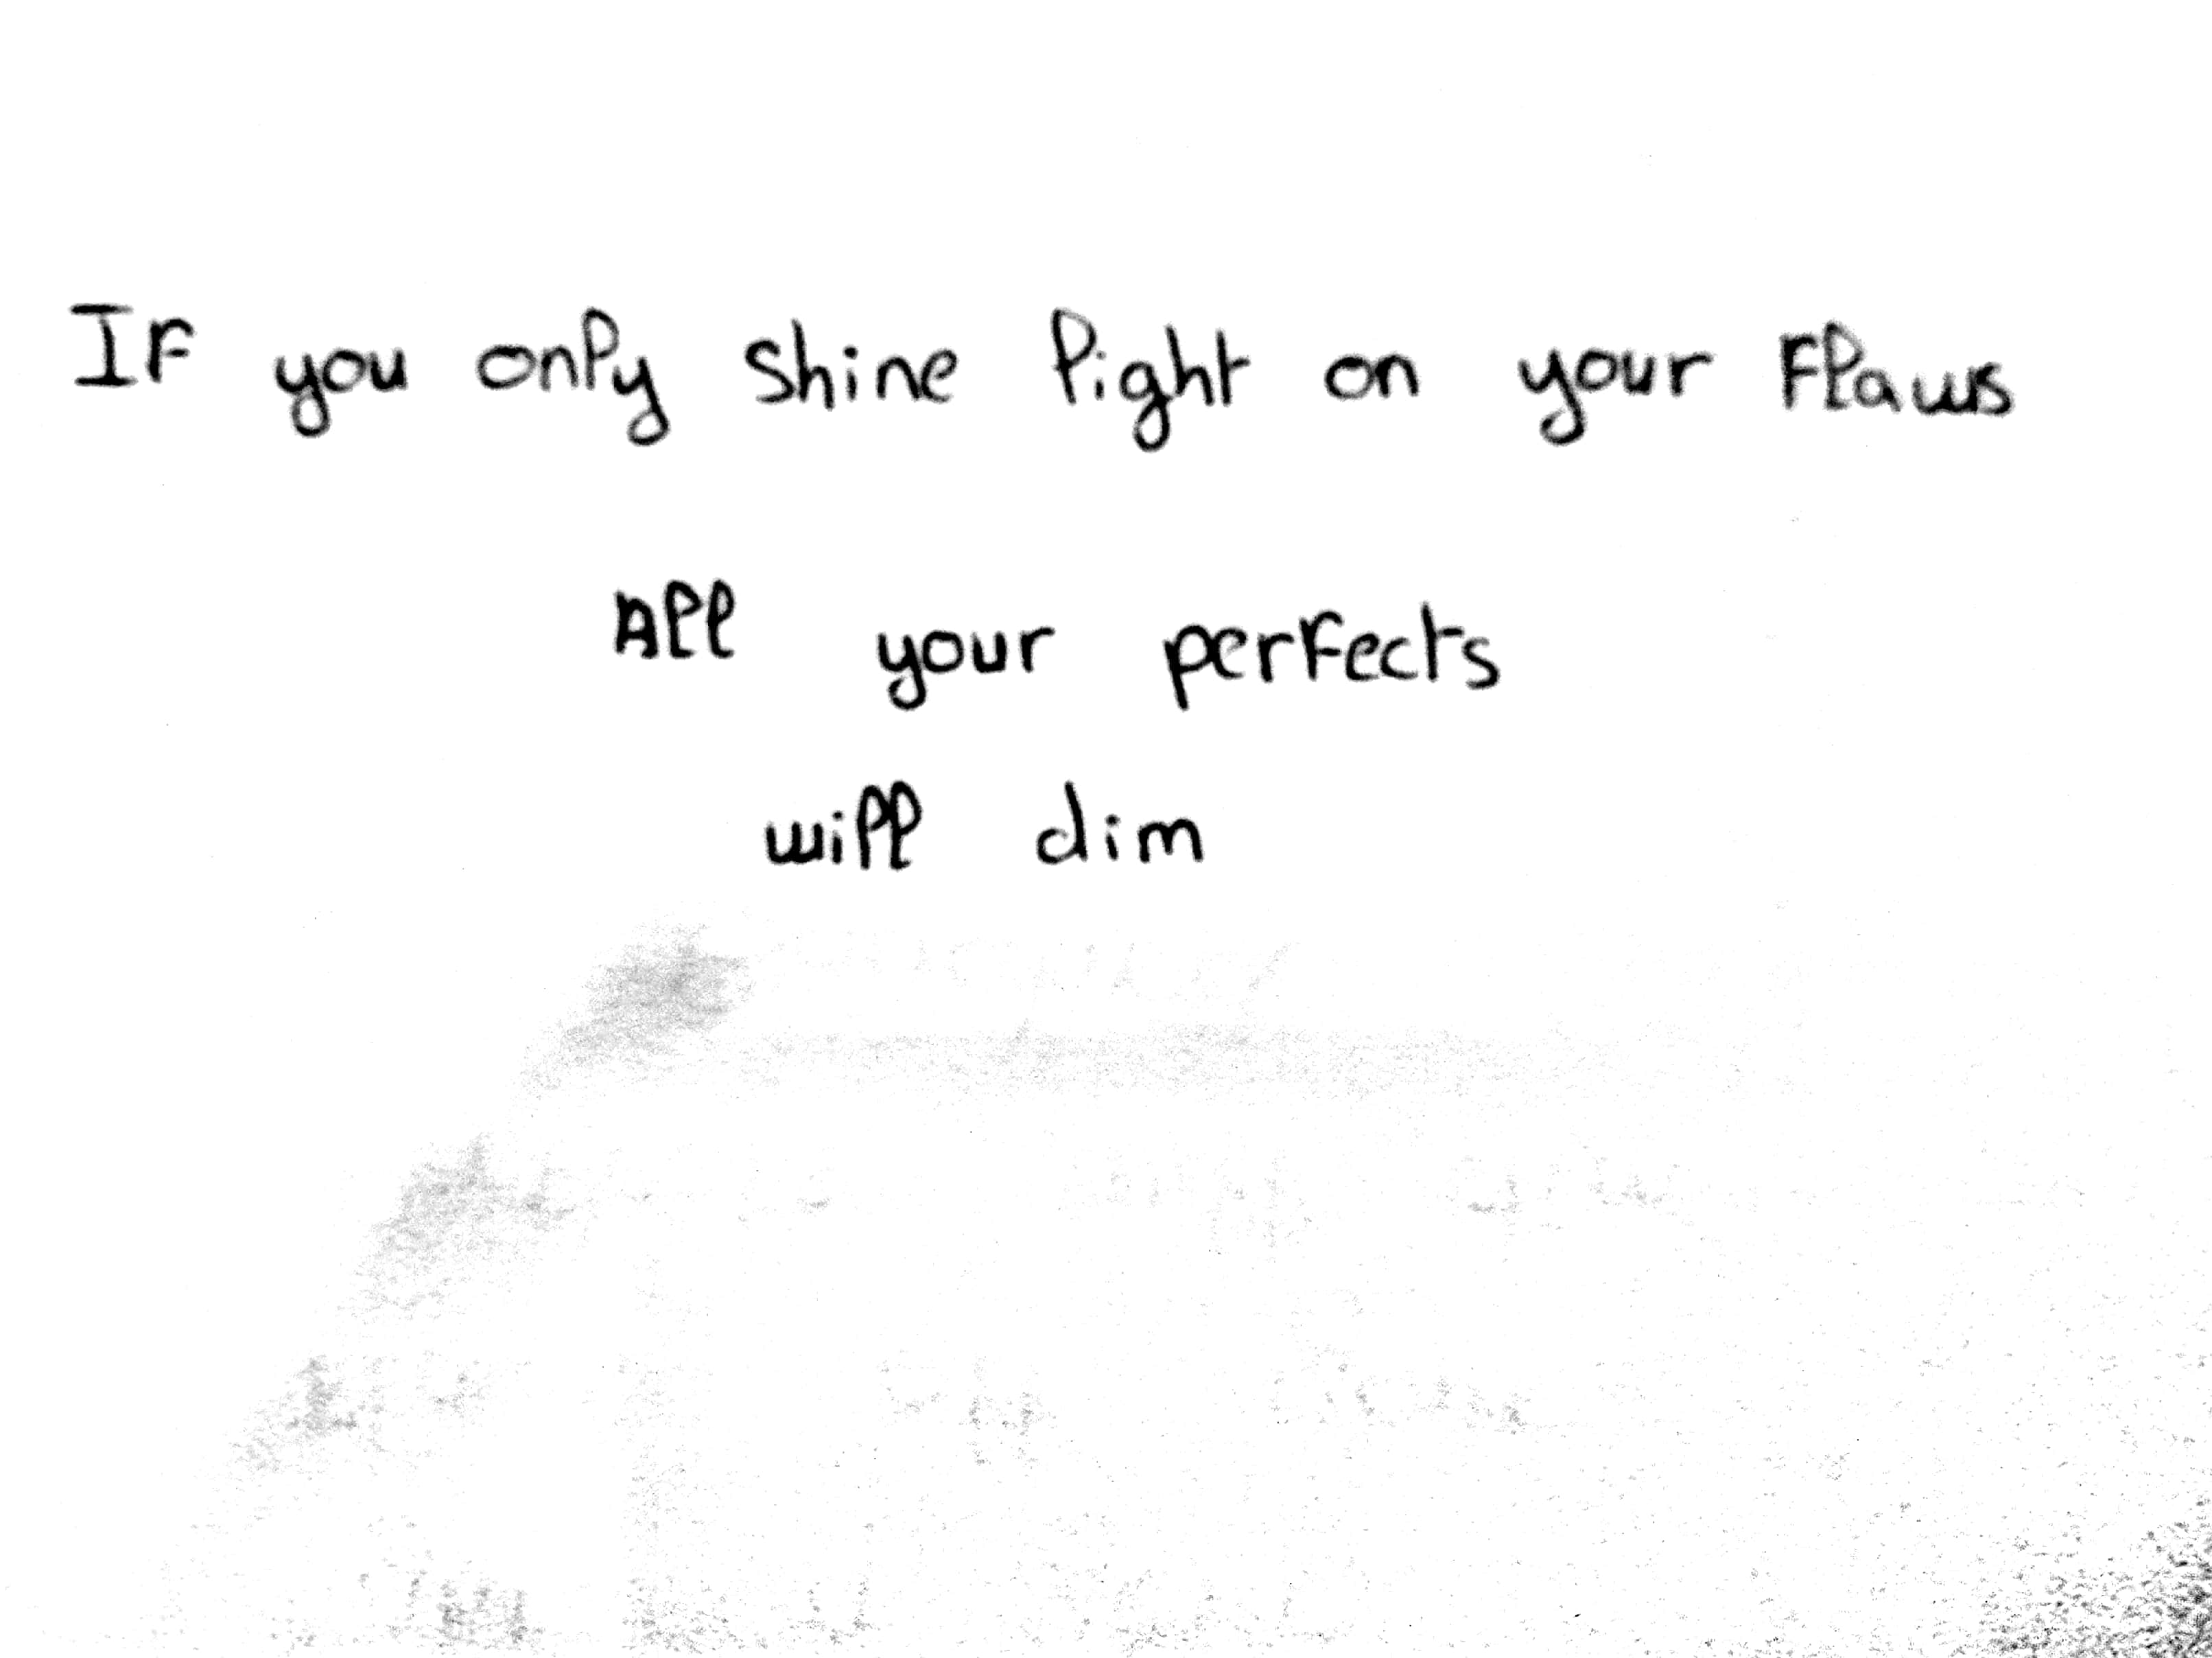 If you only shine light on your Flaws
All your perfects
will dim